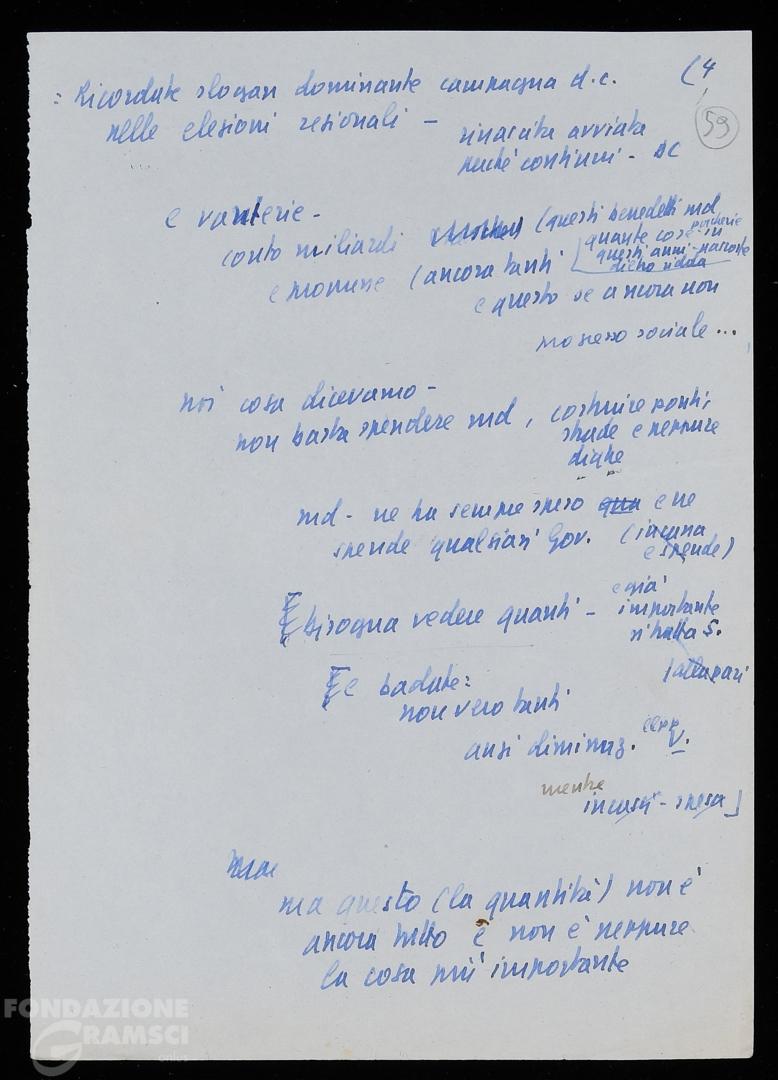 (4
59
= Ricordate slogan dominante campagna d.c.
nelle elezioni regionali -
rinascita avviata
purché continui - DC
e vanterie -
conto miliardi (questi benedetti md
e promesse (ancora tanti
quante cose in porcherie
questi anni - nascoste
dietro ridda
e questo se ancora non
progresso sociale ...
noi cosa dicevamo -
non basta spendere md, costruire ponti,
strade e neppure
dighe
md - ne ha sempre speso qua e ne
spende qualsiasi Gov. (incassa
e spende)
bisogna vedere quanti -
e già
importante
si tratta S.
e badate:
non vero tanti
anzi diminuz.
mentre
- spesa]
ma questo (la quantità) non è
ancora tutto e non è neppure
la cosa più importante
FONDAZIONE
GRAMSCI
onlus